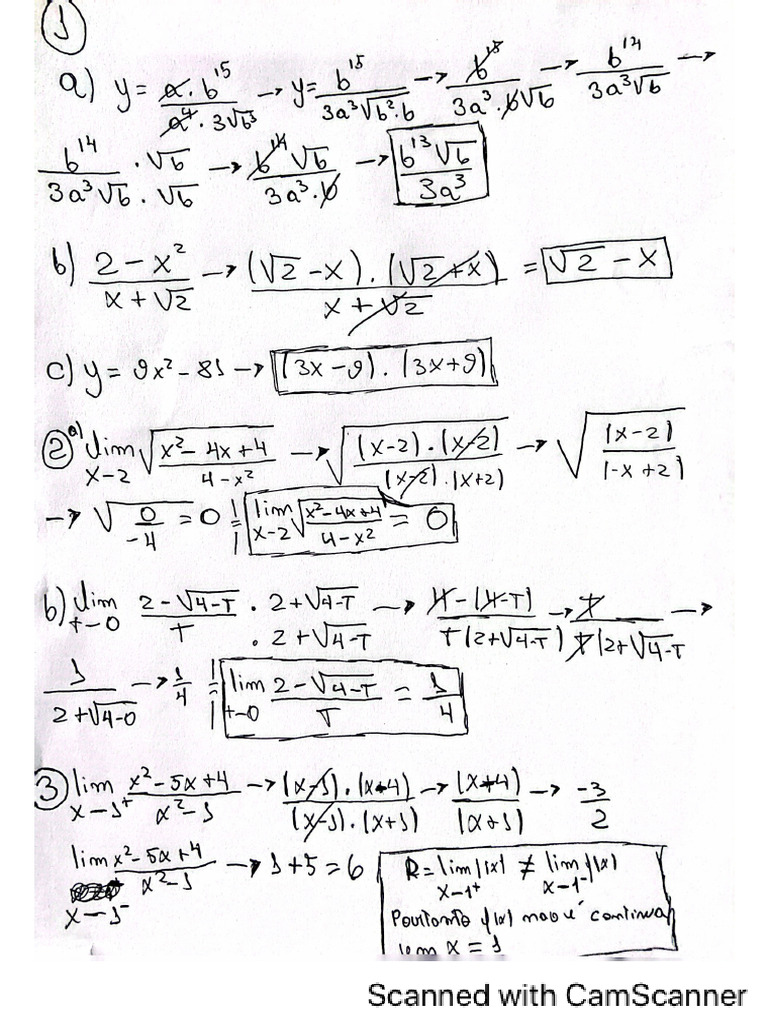 1
a) y = a · b¹⁵ / a⁴ · 3√b³ → y = b¹⁵ / 3a³√b² · b → b¹⁵ / 3a³ · b√b → b¹⁴ / 3a³√b →
b¹⁴ / 3a³√b · √b / √b → b¹⁴√b / 3a³ · b → b¹³√b / 3a³
b) 2 - x² / x + √2 → (√2 - x) · (√2 + x) / x + √2 = √2 - x
c) y = 9x² - 81 → (3x - 9) · (3x + 9)
2 a) lim x→2 √(x² - 4x + 4 / 4 - x²) → √((x-2) · (x-2) / (x-2) · (x+2)) → √((x-2) / (-x+2))
→ √(0 / -4) = 0 lim x→2 √(x² - 4x + 4 / 4 - x²) = 0
b) lim t→0 2 - √4-T / T · 2 + √4-T / · 2 + √4-T → 4 - (4-T) / T(2+√4-T) → T / T(2+√4-T →
1 / 2+√4-0 → 1/4 lim t→0 2 - √4-T / T = 1/4
3 lim x→1⁺ x² - 5x + 4 / x² - 1 → (x-1) · (x-4) / (x-1) · (x+1) → (x-4) / (x+1) → -3/2
lim x→1⁻ x² - 5x + 4 / x² - 1 → 1 + 5 = 6
R = lim x→1⁺ f(x) ≠ lim x→1⁻ f(x)
Portanto f(x) não é continua
em x = 1
Scanned with CamScanner